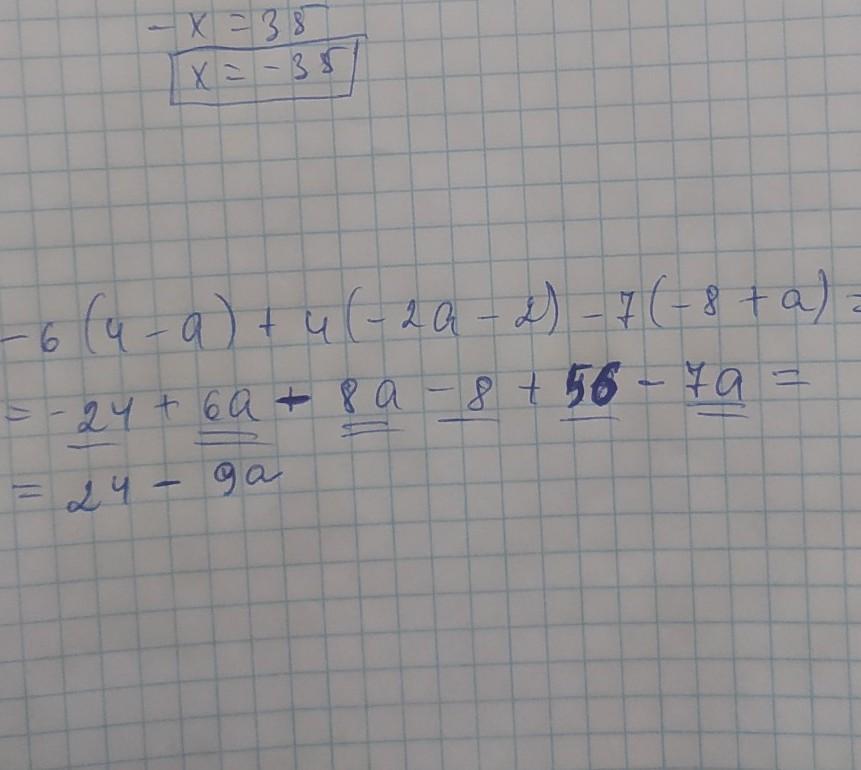 - x = 38
x = - 38
-6 (4 - a) + 4 (-2a - 2) - 7 (-8 + a) =
= -24 + 6a - 8a - 8 + 56 - 7a =
= 24 - 9a